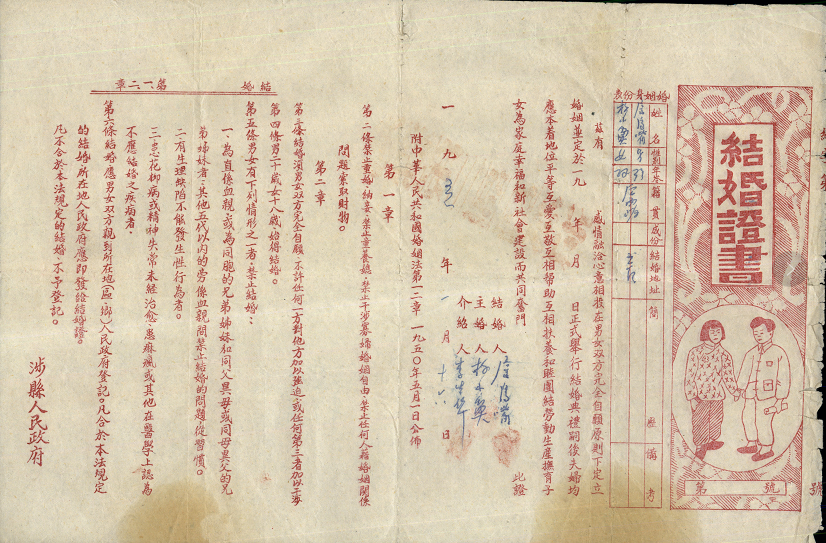 結婚證書
第 號
婚姻身份表
姓名 性別 年齡 籍貫 成份 結婚地址 簡歷 備考
男
女
茲有 感情融洽心意相投在男女双方完全自願原則下定立
婚姻並定於一九 年 月 日正式舉行結婚典禮嗣後夫婦均
應本着地位平等互爱互敬互相帮助互相扶養和睦團結勞動生產撫育子
女為家庭幸福和新社會建設而共同奮鬥 此證
結婚人
主婚人
介紹人
一九五 年一月十六日
附中華人民共和國婚姻法第一二章 一九五〇年五月一日公佈
第一章
第二條禁止重婚、納妾、禁止童養媳、禁止干涉寡婦婚姻自由、禁止任何人藉婚姻關係
問題索取財物。
第二章
第三條結婚須男女双方完全自願、不許任何一方對他方加以强迫、或任何第三者加以干涉
第四條男二十歲、女十八歲、始得結婚。
第五條男女有下列情形之一者、禁止結婚：
一、為直係血親、或為同胞的兄弟姊妹和同父異母或同母異父的兄
弟姊妹者、其他五代以內的旁係血親間禁止結婚的問題、從習慣。
二、有生理缺陷不能發生性行為者。
三、患花柳病或精神失常未經治愈、患痳瘋或其他在醫學上認為
不應結婚之疾病者。
第六條結婚應男女双方親到所在地（區、鄉）人民政府登記。凡合於本法規定
的結婚、所在地人民政府應即發給結婚證。
凡不合於本法規定的結婚、不予登記。
涉縣人民政府
結婚 第一、二章
號